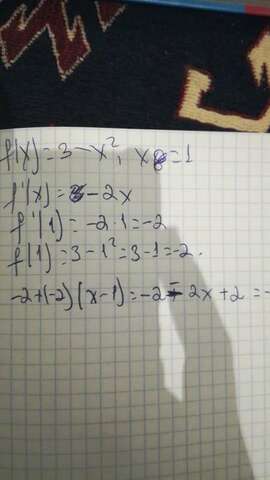 f(x)=3-x², x₀=1
f'(x)=-2x
f'(1)=-2·1=-2
f(1)=3-1²=3-1=-2.
-2+(-2)(x-1)=-2-2x+2=-